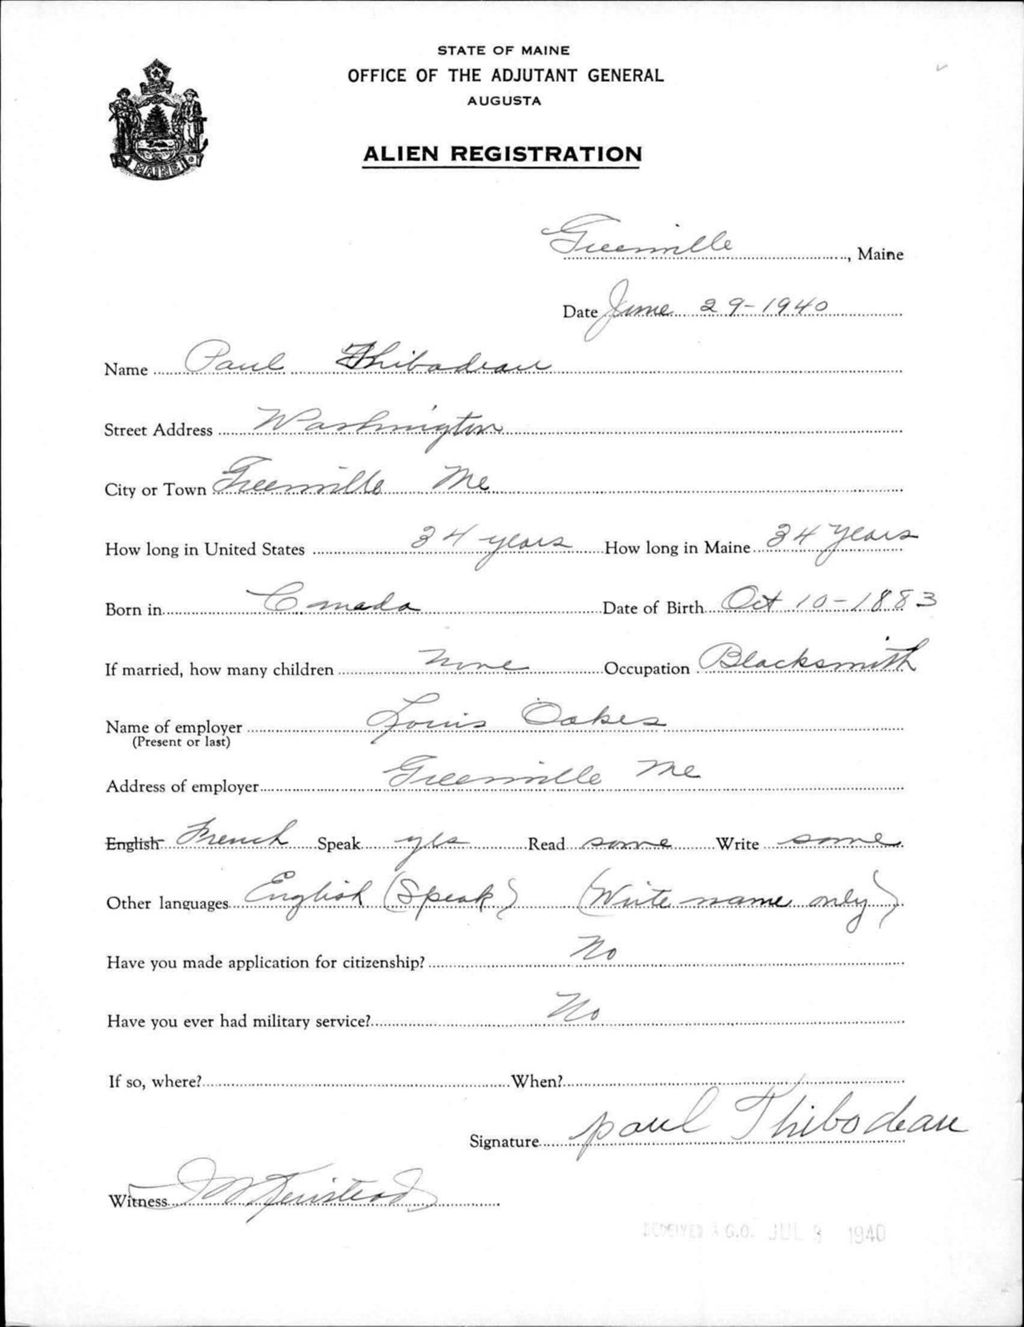 STATE OF MAINE
OFFICE OF THE ADJUTANT GENERAL
AUGUSTA
ALIEN REGISTRATION
MAINE
Greenville, Maine
Date June 29-1940
Name Paul Thibodeau
Street Address Washington
City or Town Greenville Me
How long in United States 34 years How long in Maine 34 years
Born in Canada Date of Birth Oct 10-1883
If married, how many children None Occupation Blacksmith
Name of employer Louis Oakes
(Present or last)
Address of employer Greenville Me
English French Speak yes Read some Write some
Other languages English (Speak) (Write name only)
Have you made application for citizenship? No
Have you ever had military service? No
If so, where? When?
Signature paul Thibodeau
Witness
RECEIVED A.G.O. JUL 3 1940